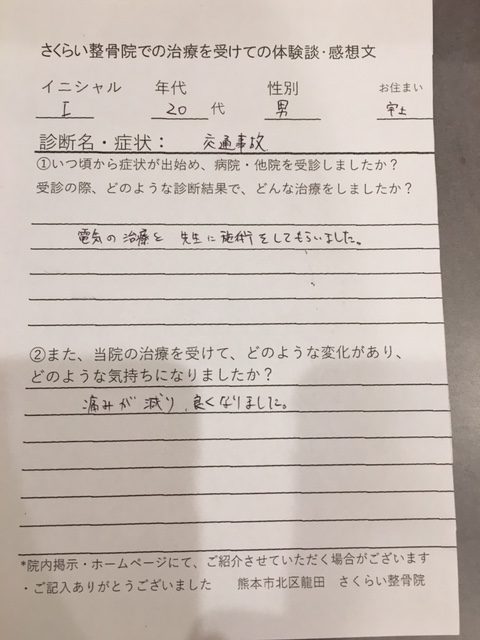 さくらい整骨院での治療を受けての体験談・感想文
イニシャル 年代 性別 お住まい
I 20代 男 宇土
診断名・症状： 交通事故
①いつ頃から症状が出始め、病院・他院を受診しましたか？
受診の際、どのような診断結果で、どんな治療をしましたか？
電気の治療と 先生に施術をしてもらいました。
②また、当院の治療を受けて、どのような変化があり、
どのような気持ちになりましたか？
痛みが 減り、良くなりました。
*院内掲示・ホームページにて、ご紹介させていただく場合がございます
・ご記入ありがとうございました 熊本市北区龍田 さくらい整骨院